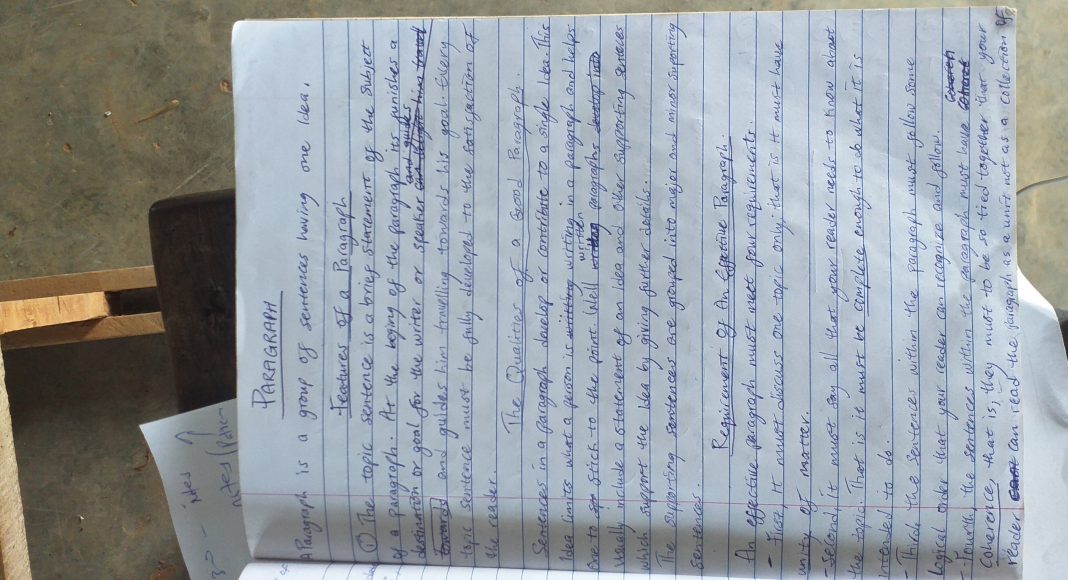 PARAGRAPH
A Paragraph is a group of sentences having one idea.
Features of a Paragraph
① The topic sentence is a brief statement of the subject
of a paragraph. At the being of the paragraph its funishes a
destination or goal for the writer or speaker and guides
towards and guides him travelling towards his goal. Every
topic sentence must be fully developed to the satisfaction of
the reader.
The Qualities of a Good Paragraph.
Sentences in a paragraph develop or contribute to a single idea. This
idea limits what a person is writing writing in a paragraph and helps
one to stick to the point. Well written paragraphs develop into
usually include a statement of an idea and other supporting sentences
which support the idea by giving further details.
The supporting sentences are grouped into major and minor supporting
sentences.
Requirement Of An Effective Paragraph.
An effective paragraph must meet four requirements.
- First, It must discuss one topic only; that is it must have
unity of matter.
- Second, it must say all that your reader needs to know about
the topic. That is it must be complete enough to do what it is
intended to do.
- Third the sentences within the paragraph must follow some
logical order that your reader can recognize and follow.
- Fourth, the sentences within the paragraph must have
Coherence, that is, they must to be so tied together that your
reader can read the paragraph as a unit not as a collection of
notes
notes